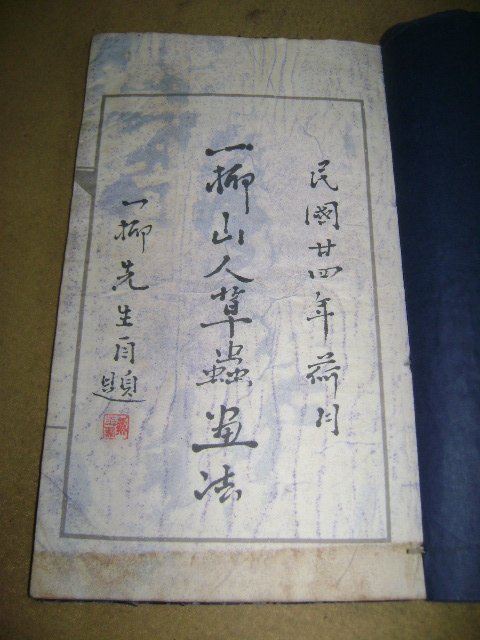 民國廿四年荷月
一柳山人草蟲畫法
一柳先生自題